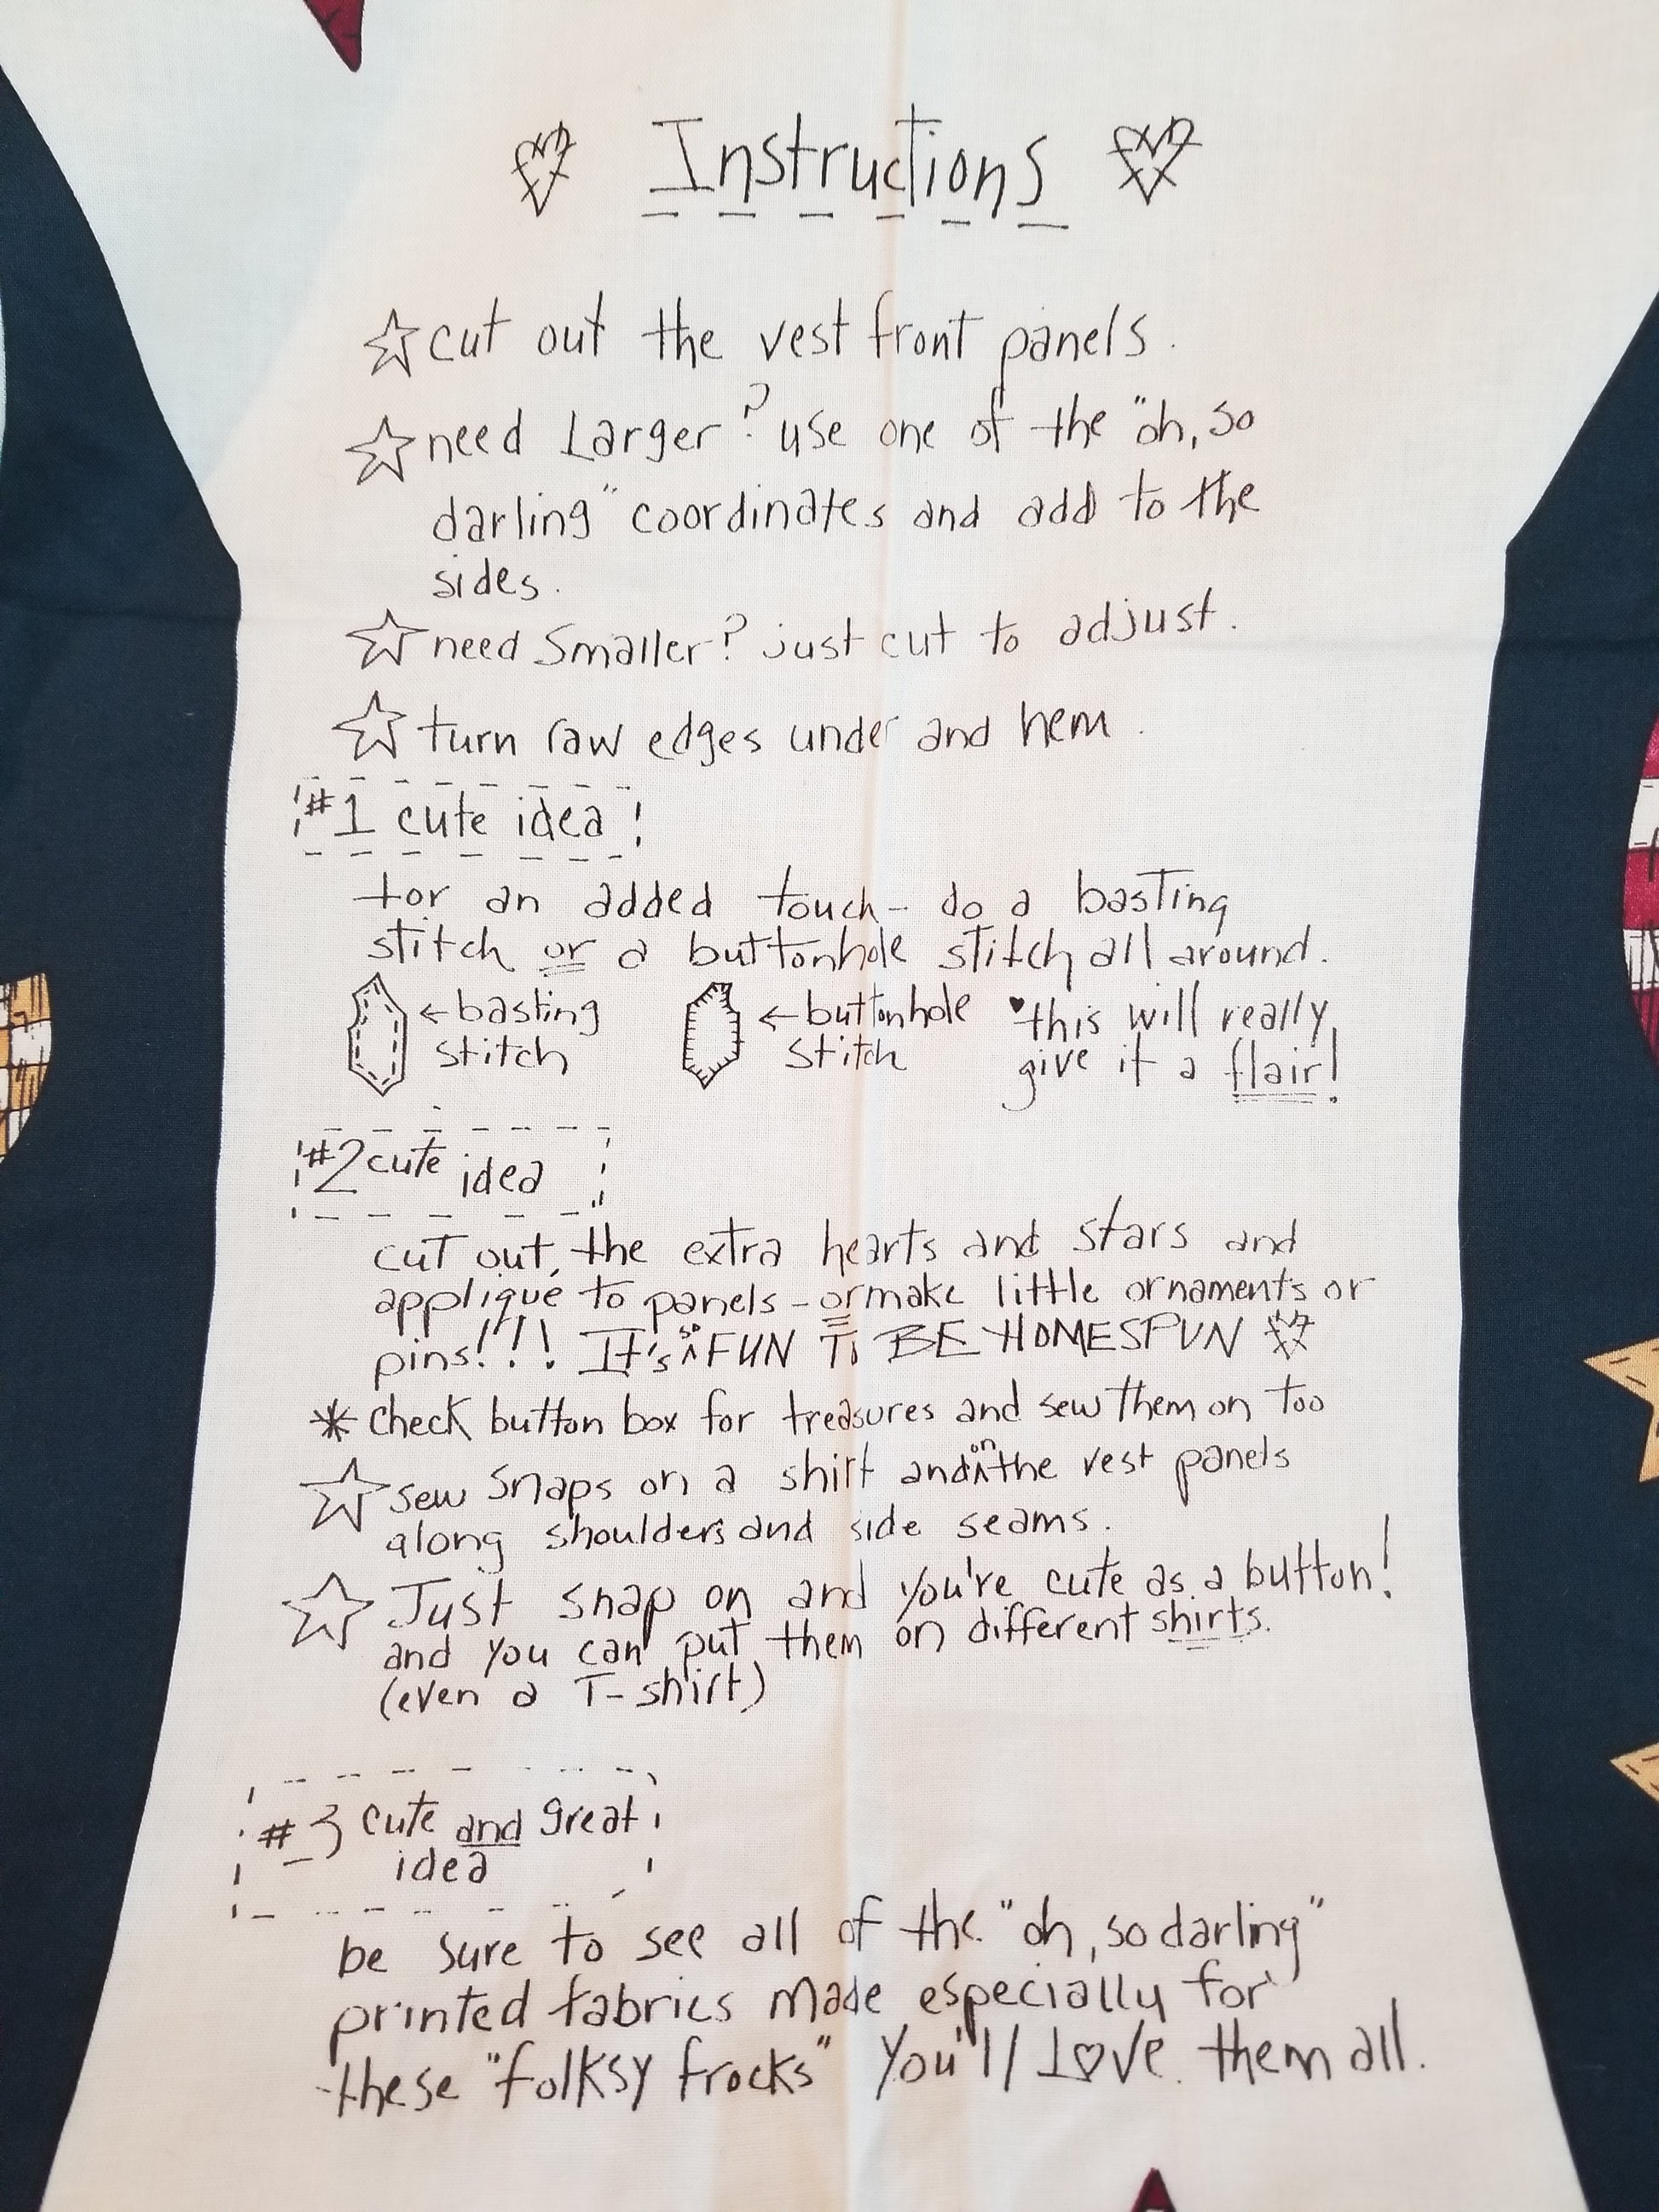 Instructions
cut out the vest front panels.
need Larger? use one of the "oh, so
darling" coordinates and add to the
sides.
need Smaller? just cut to adjust.
turn raw edges under and hem.
#1 cute idea!
for an added touch - do a basting
stitch or a buttonhole stitch all around.
←basting
stitch
←buttonhole
stitch
♥this will really
give it a flair!
#2 cute idea
cut out the extra hearts and stars and
applique to panels - or make little ornaments or
pins!!! It's so FUN To BE HOMESPUN
* check button box for treasures and sew them on too
sew snaps on a shirt and on the vest panels
along shoulders and side seams.
Just snap on and you're cute as a button!
and you can put them on different shirts.
(even a T-shirt)
#3 cute and great
idea
be sure to see all of the "oh, so darling"
printed fabrics made especially for
these "folksy frocks" You'll L♡ve them all.